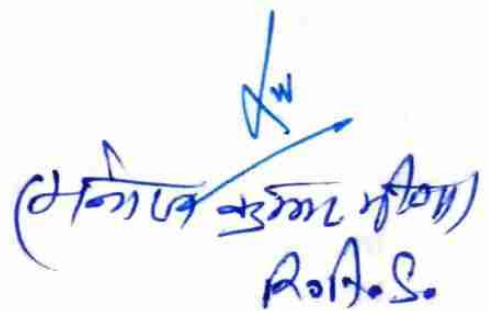 (मनोज कुमार मीणा)
R.A.S.